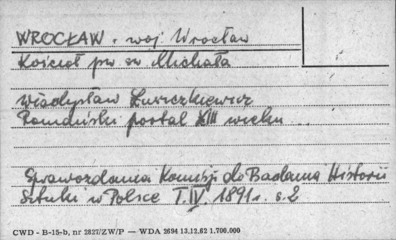 WROCŁAW. woj. Wrocław
Kościół pw św Michała
Władysław Łuszczkiewicz
Romański portal XIII wieku
Sprawozdania Komisji do Badania Historii
Sztuki w Polsce T.IV. 1891r. s.2
CWD - B-15-b, nr 2827/ZW/P — WDA 2694 13.12.62 1.700.000